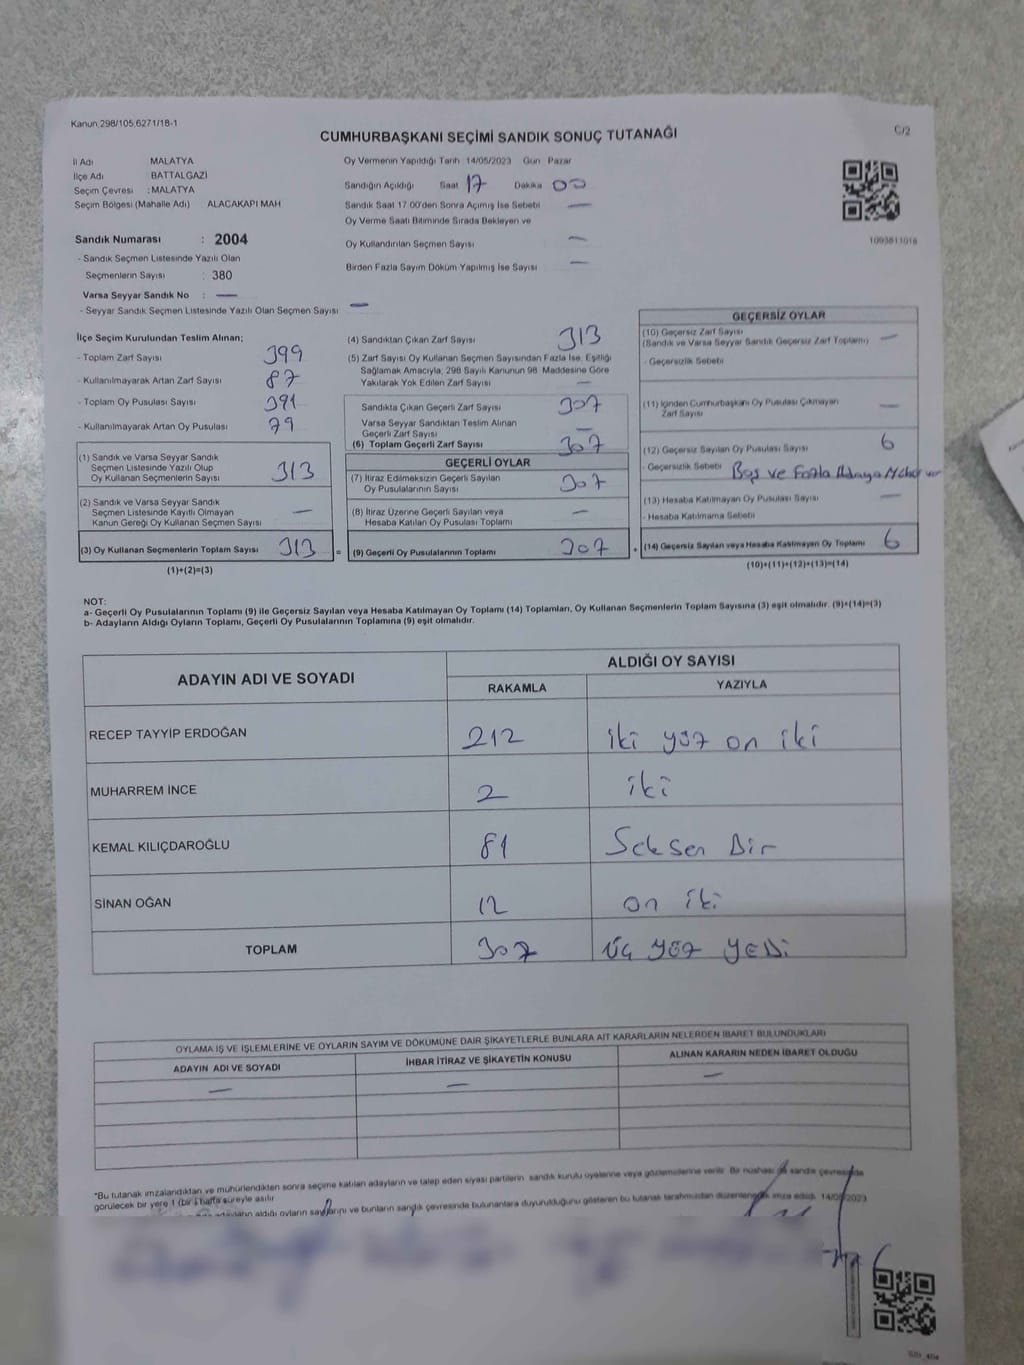 Kanun:298/105,6271/18-1
C/2
CUMHURBAŞKANI SEÇİMİ SANDIK SONUÇ TUTANAĞI
İl Adı MALATYA
İlçe Adı BATTALGAZİ
Seçim Çevresi : MALATYA
Seçim Bölgesi (Mahalle Adı) ALACAKAPI MAH
Sandık Numarası : 2004
- Sandık Seçmen Listesinde Yazılı Olan
Seçmenlerin Sayısı : 380
Varsa Seyyar Sandık No : —
- Seyyar Sandık Seçmen Listesinde Yazılı Olan Seçmen Sayısı —
Oy Vermenin Yapıldığı Tarih 14/05/2023 Gün Pazar
Sandığın Açıldığı Saat 17 Dakika 00
Sandık Saat 17.00'den Sonra Açımış İse Sebebi —
Oy Verme Saati Bitiminde Sırada Bekleyen ve
Oy Kullandırılan Seçmen Sayısı —
Birden Fazla Sayım Döküm Yapılmış İse Sayısı —
1093811016
İlçe Seçim Kurulundan Teslim Alınan;
- Toplam Zarf Sayısı 399
- Kullanılmayarak Artan Zarf Sayısı 87
- Toplam Oy Pusulası Sayısı 391
- Kullanılmayarak Artan Oy Pusulası 79
(1) Sandık ve Varsa Seyyar Sandık
Seçmen Listesinde Yazılı Olup
Oy Kullanan Seçmenlerin Sayısı 313
(2) Sandık ve Varsa Seyyar Sandık
Seçmen Listesinde Kayıtlı Olmayan
Kanun Gereği Oy Kullanan Seçmen Sayısı —
(3) Oy Kullanan Seçmenlerin Toplam Sayısı 313 =
(1)+(2)=(3)
(4) Sandıktan Çıkan Zarf Sayısı 313
(5) Zarf Sayısı Oy Kullanan Seçmen Sayısından Fazla İse, Eşitliği
Sağlamak Amacıyla; 298 Sayılı Kanunun 98. Maddesine Göre
Yakılarak Yok Edilen Zarf Sayısı —
Sandıkta Çıkan Geçerli Zarf Sayısı 307
Varsa Seyyar Sandıktan Teslim Alınan
Geçerli Zarf Sayısı —
(6) Toplam Geçerli Zarf Sayısı 307
GEÇERLİ OYLAR
(7) İtiraz Edilmeksizin Geçerli Sayılan
Oy Pusulalarının Sayısı 307
(8) İtiraz Üzerine Geçerli Sayılan veya
Hesaba Katılan Oy Pusulası Toplamı —
(9) Geçerli Oy Pusulalarının Toplamı 307 +
GEÇERSİZ OYLAR
(10) Geçersiz Zarf Sayısı
(Sandık ve Varsa Seyyar Sandık Geçersiz Zarf Toplamı) —
- Geçersizlik Sebebi
(11) İçinden Cumhurbaşkanı Oy Pusulası Çıkmayan
Zarf Sayısı —
(12) Geçersiz Sayılan Oy Pusulası Sayısı 6
- Geçersizlik Sebebi Boş ve Fazla
(13) Hesaba Katılmayan Oy Pusulası Sayısı —
- Hesaba Katılmama Sebebi
(14) Geçersiz Sayılan veya Hesaba Katılmayan Oy Toplamı 6
(10)+(11)+(12)+(13)=(14)
NOT:
a- Geçerli Oy Pusulalarının Toplamı (9) ile Geçersiz Sayılan veya Hesaba Katılmayan Oy Toplamı (14) Toplamları, Oy Kullanan Seçmenlerin Toplam Sayısına (3) eşit olmalıdır. (9)+(14)=(3)
b- Adayların Aldığı Oyların Toplamı, Geçerli Oy Pusulalarının Toplamına (9) eşit olmalıdır.
ADAYIN ADI VE SOYADI
ALDIĞI OY SAYISI
RAKAMLA YAZIYLA
RECEP TAYYİP ERDOĞAN 212 iki yüz on iki
MUHARREM İNCE 2 iki
KEMAL KILIÇDAROĞLU 81 Seksen Bir
SİNAN OĞAN 12 on iki
TOPLAM 307 üç yüz yedi
OYLAMA İŞ VE İŞLEMLERİNE VE OYLARIN SAYIM VE DÖKÜMÜNE DAİR ŞİKAYETLERLE BUNLARA AİT KARARLARIN NELERDEN İBARET BULUNDUKLARI
ADAYIN ADI VE SOYADI İHBAR İTİRAZ VE ŞİKAYETİN KONUSU ALINAN KARARIN NEDEN İBARET OLDUĞU
— — —
*Bu tutanak imzalandıktan ve mühürlendikten sonra seçime katılan adayların ve talep eden siyasi partilerin sandık kurulu üyelerine veya gözlemcilerine verilir. Bir nüshası da sandık çevresinde
görülecek bir yere 1 (bir) hafta süreyle asılır.
adayların aldığı oyların sayılarını ve bunların sandık çevresinde bulunanlara duyurulduğunu gösteren bu tutanak tarafımızdan düzenlenerek imza edildi. 14/05/2023